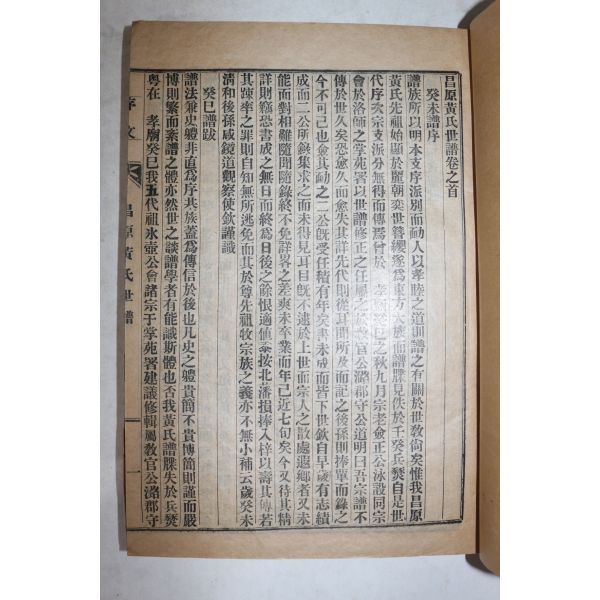 昌原黃氏世譜卷之首
癸未譜序
譜族所以明本支序派別而勸人以孝睦之道則譜之有關於世敎尙矣惟我昌原
黃氏先祖始顯於麗朝奕世簪纓遂爲東方大族而譜牒見佚於壬癸兵燹自是世
代序次宗支派分無得而傳焉曾於 孝廟癸巳之秋九月宗老僉正公泳設同宗
會於洛師之掌苑署以世譜修正之任屬之敎官公潞郡守公道明曰吾宗譜不
傳於世久矣恐愈久而愈失其詳先代則從耳聞所及而記之後孫則捧單而錄之
今不可已也僉其勗之二公旣受任積有年矣書未成而皆下世欽自早歲有志續
成而二公所錄集求之而未得見耳目旣不逮於上世而宗人之散處遐鄕者又未
能而對相難隨聞隨錄終不免詳畧之差爽未卒業而年已近七旬矣今又待其精
詳則竊恐書成之無日而終爲日後之餘恨適値忝按北藩損捧入梓以壽其傳若
其踈率之罪則自知無所逃免而其於尊先祖收宗族之義亦不無小補云歲癸未
淸和後孫咸鏡道觀察使欽謹識
癸巳譜跋
譜法兼史軆非直爲序其族蓋爲傳信於後也凡史之軆貴簡不貴博簡則謹而嚴
博則繁而紊譜之體亦然世之談譜學者有能識斯體也否我黃氏譜牒失於兵燹
粤在 孝廟癸巳我五代祖氷壺公會諸宗于掌苑署建議修輯屬敎官公潞郡守
序文
昌原黃氏世譜
一